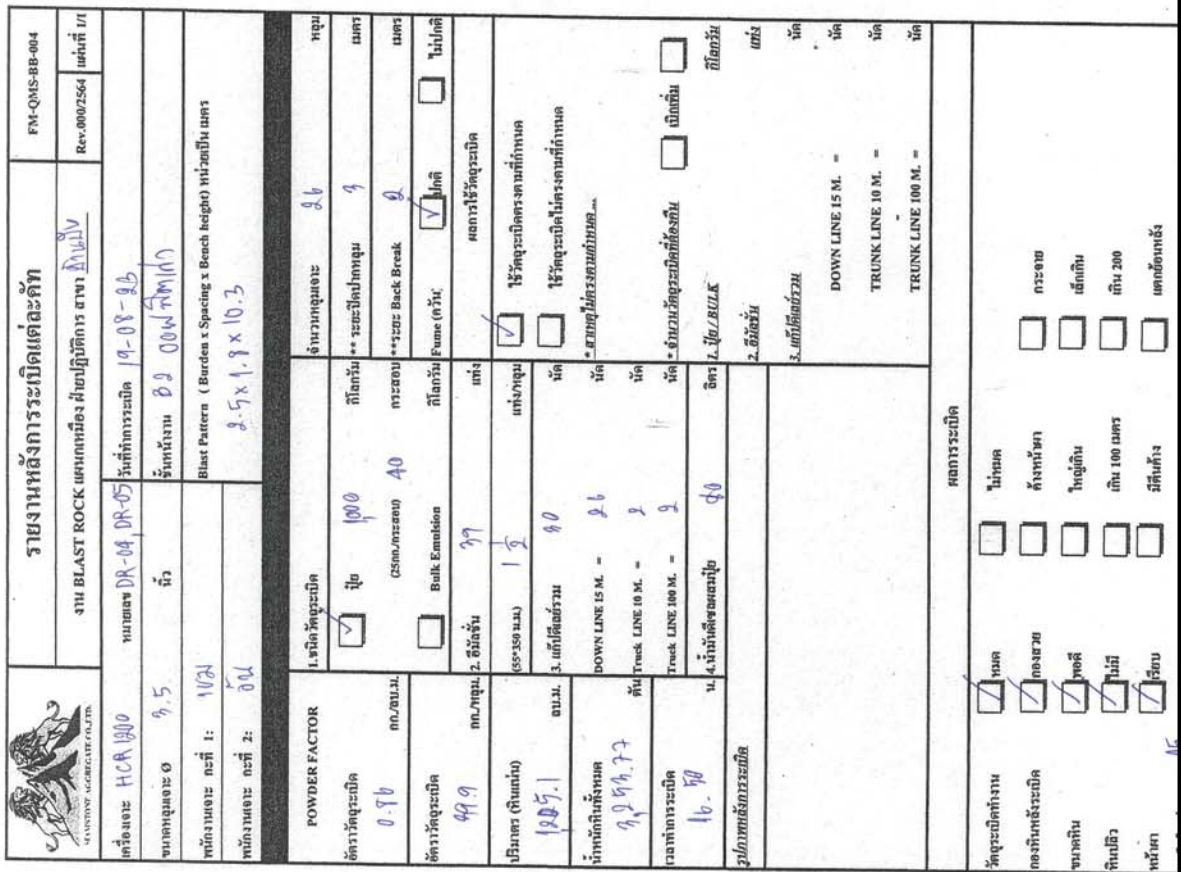 รายงานหลังการระเบิดแต่ละคัท
FM-QMS-BB-004
งาน BLAST ROCK แผนกเหมือง ฝ่ายปฏิบัติการ สาขา
Rev.000/2564 แผ่นที่ 1/1
เครื่องเจาะ HCR 1200 หมายเลข DR-04, DR-05 วันที่ทำการระเบิด 19-08-23
ขนาดหลุมเจาะ Ø 3.5 นิ้ว ชั้นหน้างาน B2
พนักงานเจาะ กะที่ 1:
Blast Pattern ( Burden x Spacing x Bench height) หน่วยเป็น เมตร
พนักงานเจาะ กะที่ 2:
2.5 x 1.8 x 10.3
POWDER FACTOR
อัตราวัตถุระเบิด
0.86 กก./ลบ.ม.
อัตราวัตถุระเบิด
39.9 กก./หลุม.
ปริมาตร (หินแน่น)
1205.1 ลบ.ม.
น้ำหนักหินทั้งหมด
3,253.77 ตัน
เวลาทำการระเบิด
16.30 น.
1.ชนิดวัตถุระเบิด
ปุ๋ย 1000 กิโลกรัม
(25กก./กระสอบ) 40 กระสอบ
Bulk Emulsion กิโลกรัม
2. อีมัลชั่น 39 แท่ง
(55*350 ม.ม.) 1 1/2 แท่ง/หลุม
3. แก๊ปดีเลย์รวม 30 นัด
DOWN LINE 15 M. = 26 นัด
Truck LINE 10 M. = 2 นัด
Truck LINE 100 M. = 2 นัด
4.น้ำมันดีเซลผสมปุ๋ย 80 ลิตร
จำนวนหลุมเจาะ 26 หลุม
** ระยะปิดปากหลุม 3 เมตร
**ระยะ Back Break 2 เมตร
Fume (ควัน) ปกติ ไม่ปกติ
ผลการใช้วัตถุระเบิด
ใช้วัตถุระเบิดตรงตามที่กำหนด
ใช้วัตถุระเบิดไม่ตรงตามที่กำหนด
* สาเหตุไม่ตรงตามกำหนด...
* จำนวนวัตถุระเบิดที่ต้องคืน เบิกเพิ่ม
1. ปุ๋ย / BULK กิโลกรัม
2. อีมัลชั่น แท่ง
3. แก๊ปดีเลย์รวม นัด
DOWN LINE 15 M. = นัด
TRUNK LINE 10 M. = นัด
TRUNK LINE 100 M. = นัด
รูปภาพหลังการระเบิด
ผลการระเบิด
วัตถุระเบิดทำงาน หมด ไม่หมด
กองหินหลังระเบิด กองสวย ค้างหน้าผา กระจาย
ขนาดหิน พอดี ใหญ่เกิน เล็กเกิน
หินปลิว ไม่มี เกิน 100 เมตร เกิน 200
หน้าผา เรียบ มีตีนค้าง แตกย้อนหลัง